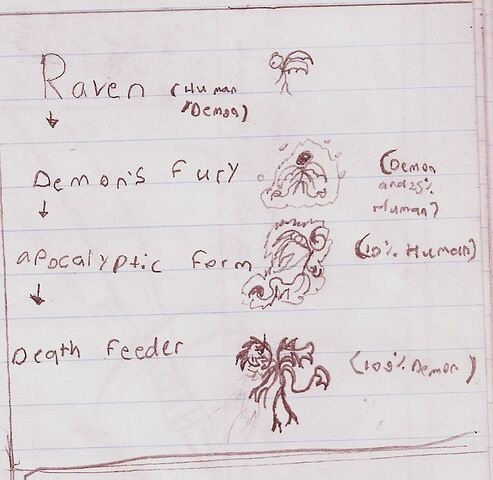 Raven (Human
/Demon)
Demon's Fury
(Demon
and 25%
Human)
apocalyptic form
(10% Human)
Death feeder
(100% Demon)